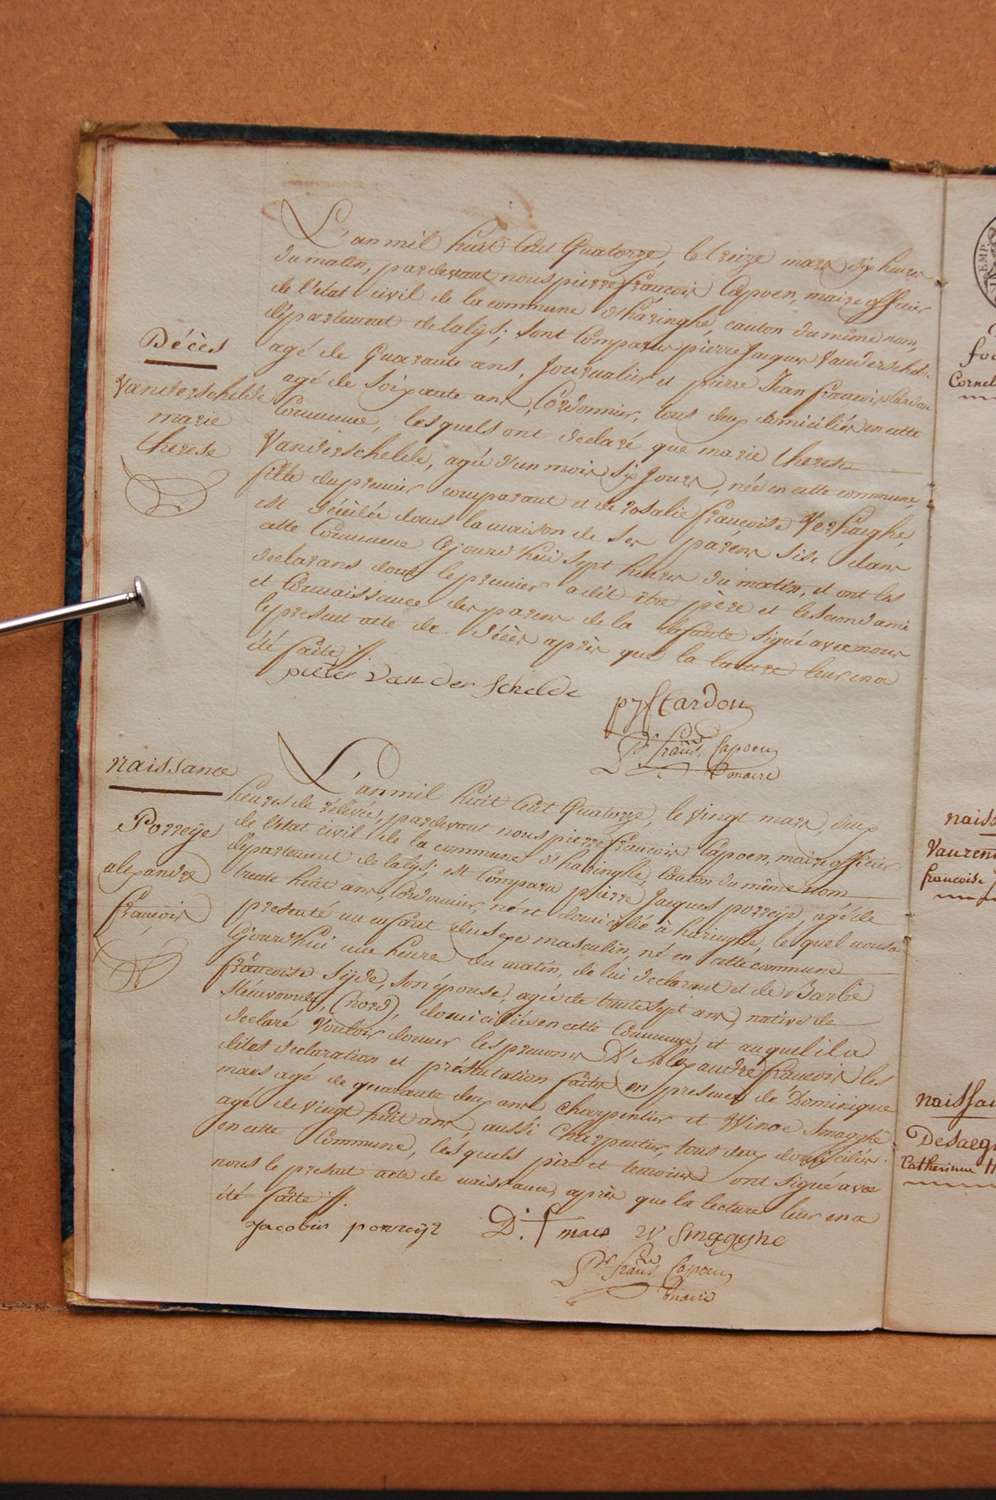 Décès
Vanderschelde
marie
therese
L'an mil huit Cent Quatorze, le treize mars dix heures
du matin, pardevant nous pierre francois Capoen, maire officier
de l'état civil de la commune d'haringhe, canton du même nom,
département de la lys; sont comparus pierre Jacques Vanderschel-
agé de Quarante ans, Journalier et pierre Jean francois
agé de soixante ans, Cordonnier, tous deux domiciliés en cette
Commune, lesquels ont declaré que marie therese
Vanderschelde, agée d'un mois six Jours, née en cette commune,
fille du premier comparant et de rosalie francoise Verhaeghe,
est décédée dans la maison de ses parens sise dans
cette Commune Cejourd'hui sept heures du matin, et ont les
declarans dont le premier a dit être père et le second ami
et Connaissance des parens de la defunte signé avec nous
le present acte de décès après que la lecture leur en a
été faite
pieter Van der Schelde
pjf Cardon
Pre franc Capoen
maire
naissance
Porreye
alexandre
francois
L'an mil huit Cent Quatorze, le vingt mars, deux
heures de rélévée, pardevant nous pierre francois Capoen, maire officier
de l'état civil de la commune d'haringhe, Canton du même nom
département de la lys; est Comparu pierre Jacques porreye, agé de
trente huit ans, Cordonnier, né et domicilié à haringhe, lequel nous a
presenté un enfant du sexe masculin, né en cette commune
Cejourd'hui une heure du matin, de lui declarant et de Barbe
francoise Sijde, son épouse, agée de trente sept ans, native de
(nord), domiciliés en cette Commune, et auquel il a
declaré vouloir donner les prenoms D'Alexandre francois les
dites declaration et présentation faites en presence de Dominique
maes agé de quarante deux ans, charpentier et Winoc Smagghe
agé de vingt huit ans, aussi Charpentier, tous deux domiciliés
en cette Commune, lesquels père et temoins ont signé avec
nous le present acte de naissance, après que la lecture leur en a
été faite
Jacobus porreije
D. f maes W Smagghe
Pre franc Capoen
maire
Cornel
naiss
Vaurené
francoise
naissan
Desaegh
Catherinne